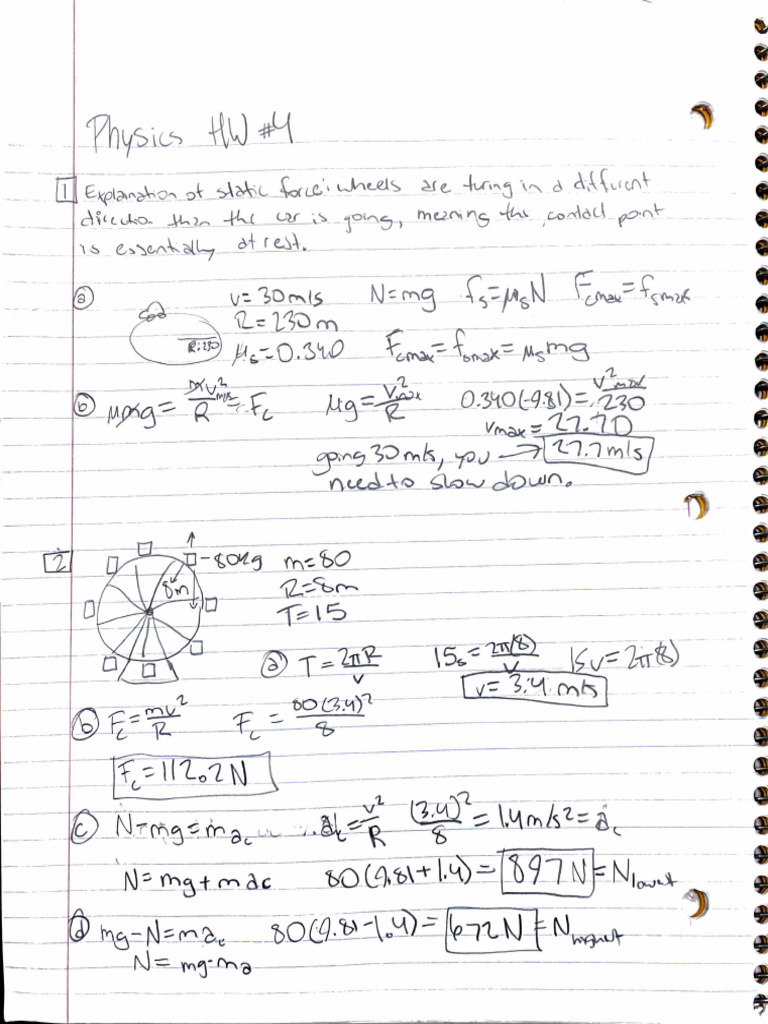 Physics HW #4
1 Explanation of static force: wheels are turing in a different
direction than the car is going, meaning the contact point
is essentially at rest.
a v = 30 m/s N=mg fs=μsN Fcmax = fsmax
R = 230 m
R=230 μs = 0.340 Fcmax = fsmax = μsmg
b μmg = mv²/R = Fc μg = v²max/R 0.340(9.81) = v²max/230
vmax = 27.70
going 30 m/s, you → 27.7 m/s
need to slow down.
2 -80kg m=80
8m R=8m
T=15
a T = 2πR/v 15s = 2π(8)/v 15v = 2π(8)
v = 3.4 m/s
b Fc = mv²/R Fc = 80(3.4)²/8
Fc = 112.2 N
c N-mg = mac ac = v²/R (3.4)²/8 = 1.4 m/s² = ac
N = mg + mac 80(9.81+1.4) = 897 N = Nlowest
d mg-N = mac 80(9.81-1.4) = 672 N = Nhighest
N = mg-ma